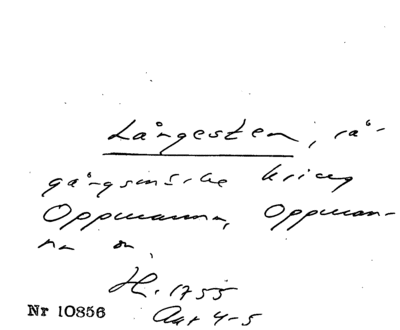 Långesten, rå-
gångsmärke kring
Oppmanna, Oppman-
na sn,
H. 1755
Akt 4-5
Nr 10856